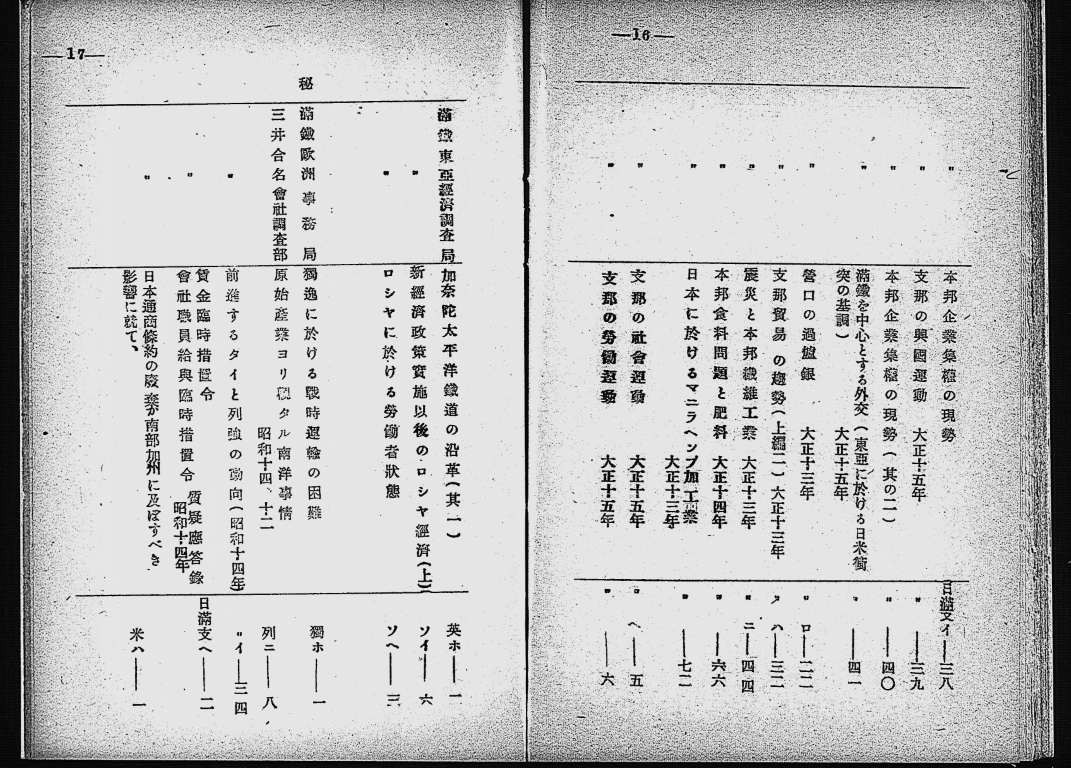 —16—
〃 本邦企業集權の現勢 日滿支イ——三八
〃 支那の興國運動 大正十五年 〃 ——三九
〃 本邦企業集權の現勢(其の二) 〃 ——四〇
〃 滿鐵を中心とする外交(東亞に於ける日米衝
突の基調) 大正十五年 〃 ——四一
〃 營口の過爐銀 大正十三年 〃 ロ——二二
〃 支那貿易の趨勢(上編二)大正十三年 〃 ハ——三二
〃 震災と本邦纖維工業 大正十三年 〃 ニ——四四
〃 本邦食料問題と肥料 大正十四年 〃 ——六六
〃 日本に於けるマニラヘンプ加工業
大正十三年 〃 ——七二
〃 支那の社會運動 大正十五年 〃 ヘ——五
〃 支那の勞働運動 大正十五年 〃 ——六
—17—
滿鐵東亞經濟調査局 加奈陀太平洋鐵道の沿革(其一) 英ホ——一
〃 新經濟政策實施以後のロシヤ經濟(上) ソイ——六
〃 ロシヤに於ける勞働者狀態 ソヘ——三
秘 滿鐵歐洲事務局 獨逸に於ける戰時運輸の困難 獨ホ——一
三井合名會社調査部 原始產業ヨリ觀タル南洋事情
昭和十四、十二 列ニ——八
〃 前進するタイと列強の動向(昭和十四年) 〃イ——三四
〃 賃金臨時措置令
會社職員給與臨時措置令 質疑應答錄
昭和十四年 日滿支ヘ——二
〃 日本通商條約の廢棄が南部加州に及ぼすべき
影響に就て、 米ハ——一